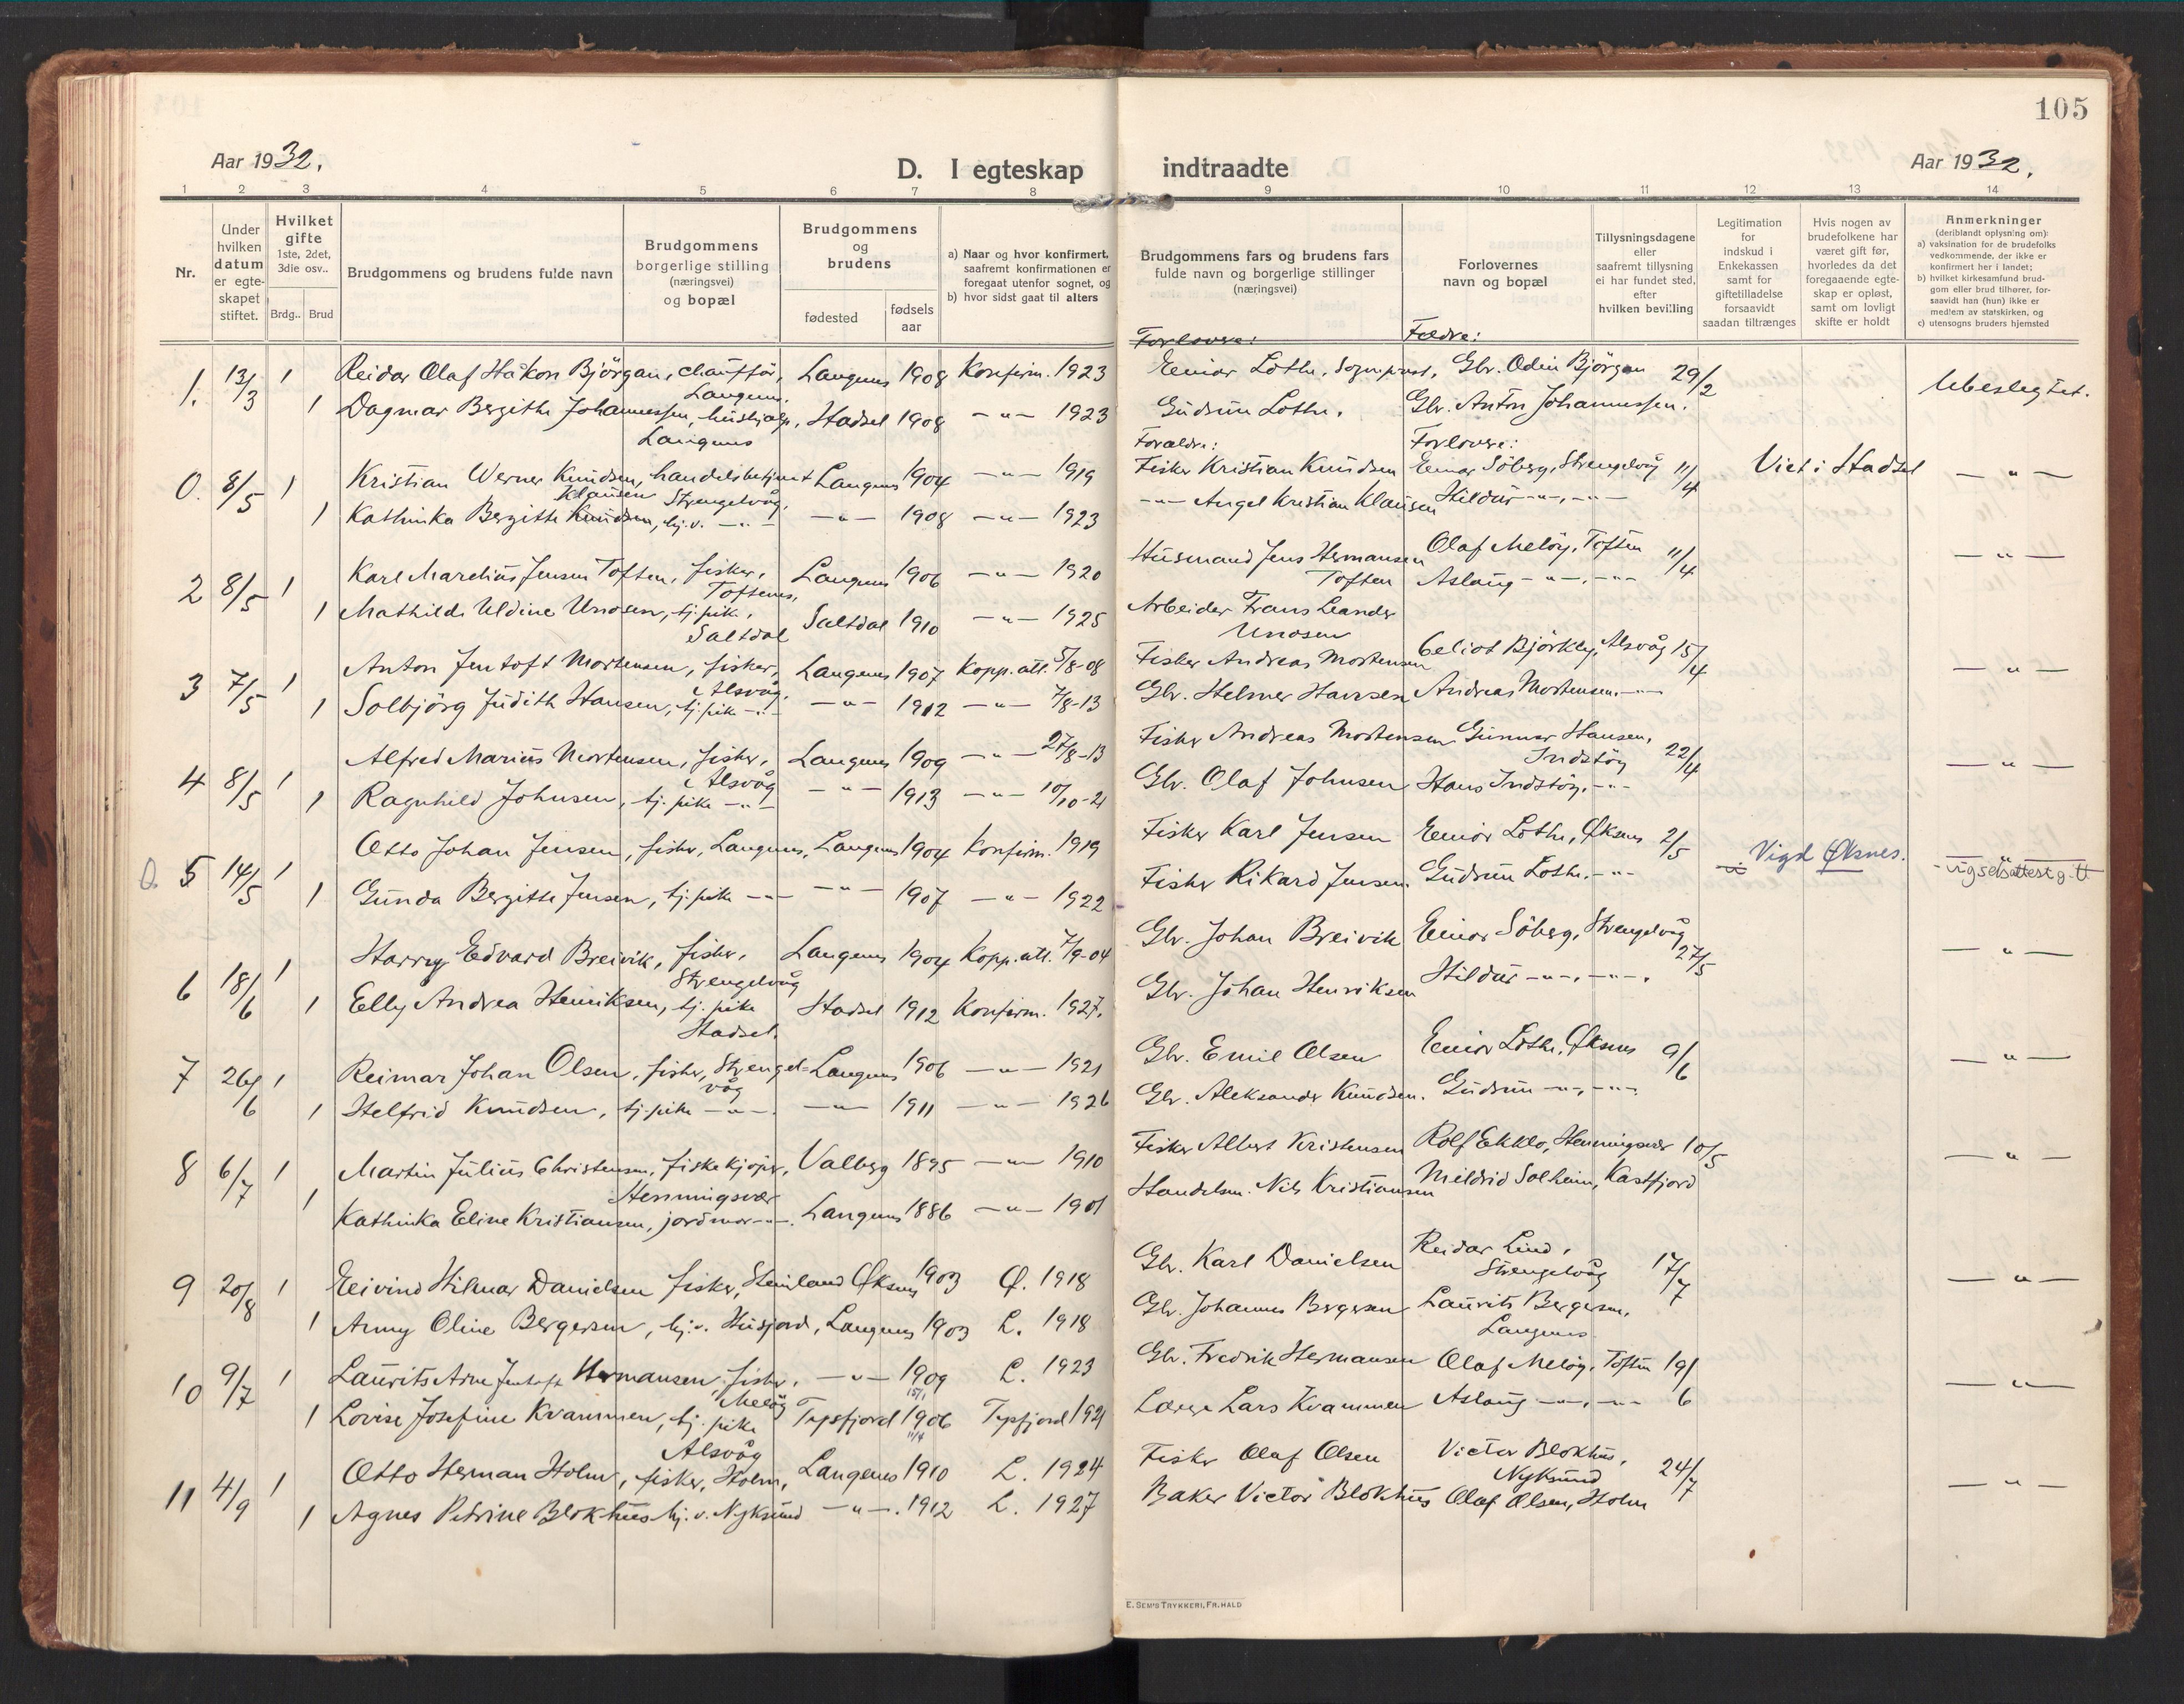 105
Aar 1932.
D. I egteskap indtraadte
Aar 1932.
1 2 3 4 5 6 7 8 9 10 11 12 13 14
Nr.
Under hvilken datum er egteskapet stiftet.
Hvilket gifte 1ste, 2det, 3die osv..
Brdg.. Brud
Brudgommens og brudens fulde navn
Brudgommens borgerlige stilling (næringsvei) og bopæl
Brudgommens og brudens
fødested
fødsels aar
a) Naar og hvor konfirmert, saafremt konfirmationen er foregaat utenfor sognet, og
b) hvor sidst gaat til alters
Brudgommens fars og brudens fars fulde navn og borgerlige stillinger (næringsvei)
Forlovernes navn og bopæl
Tillysningsdagene eller saafremt tillysning ei har fundet sted, efter hvilken bevilling
Legitimation for indskud i Enkekassen samt for giftetilladelse forsaavidt saadan tiltrænges
Hvis nogen av brudefolkene har været gift før, hvorledes da det foregaaende egteskap er opløst, samt om lovligt skifte er holdt
Anmerkninger (deriblandt oplysning om):
a) vaksination for de brudefolks vedkommende, der ikke er konfirmert her i landet;
b) hvilket kirkesamfund brudgom eller brud tilhører, forsaavidt han (hun) ikke er medlem av statskirken, og
c) utensogns bruders hjemsted
Forlovere: Fædre:
1. 13/3 1 Reidar Olaf Håkon Björgan, chaufför, Langenes. Langenes 1908 Konfirm. 1923 Einar Lothe, Sogneprest, Gbr. Odin Björgan 29/2 Ubeslegtet.
1 Dagmar Bergithe Johannessen, hushjelp, Langenes Hadsel 1908 -"- 1923 Gudrun Lothe. Gbr. Anton Johannessen.
Forældre: Forlovere:
0. 8/5 1 Kristian Werner Knudsen, handelsbetjent Strengelvåg, Langenes 1904 -"- 1919 Fisker Kristian Knudsen Einar Söberg, Strengelvåg 11/4 Viet i Hadsel -"-
1 Kathinka Bergitte Knudsen Klausen, hj.v. -"- -"- 1908 -"- 1923 -"- Angel Kristian Klausen Hildur -"-, -"-
2 8/5 1 Karl Marelius Jensen Toften, fisker, Toftenes, Langenes 1906 -"- 1920 Husmand Jens Hermansen Toften Olaf Meløy, Toften 11/4 -"-
1 Mathilde Uldine Unosen, tj.pike, Saltdal Saltdal 1910 -"- 1925 Arbeider Frans Leander Unosen Aslaug -"-, -"-
3 7/5 1 Anton Jentoft Mortensen, fisker, Alsvåg. Langenes 1907 Kopp.att. 5/8-08 Fisker Andreas Mortensen Celiot Björkly, Alsvåg 15/4 -"-
1 Solbjörg Judith Hansen, tj.pike -"- -"- 1912 -"- 7/8-13 Gbr. Helmer Hansen Andreas Mortensen. -"-
4 8/5 1 Alfred Marius Mortensen, fisker, Alsvåg Langenes 1909 -"- 27/8-13 Fisker Andreas Mortensen Gunnar Hansen, Indstöy 22/4 -"-
1 Ragnhild Johnsen, tj.pike -"- -"- 1913 -"- 10/10-21 Gbr. Olaf Johnsen Hans Indstöy. -"-
0. 5 14/5 1 Otto Johan Jensen, fisker, Langenes, Langenes 1904 Konfirm. 1919 Fisker Karl Jensen Einar Lothe, Øksnes 2/5 Vigd Øksnes. vigselsattest g.tt
1 Gunda Bergitte Jensen, tj.pike -"- -"- 1907 -"- 1922 Fisker Rikard Jensen. Gudrun Lothe. -"-
6 18/6 1 Harry Edvard Breivik, fisker, Strengelvåg Langenes 1904 Kopp.att. 7/9-04 Gbr. Johan Breivik Einar Söberg, Strengelvåg 27/5 -"-
1 Elly Andrea Henriksen, tj.pike Hadsel. Hadsel 1912 Konfirm. 1927. Gbr. Johan Henriksen Hildur -"-, -"-.
7 26/6 1 Reimar Johan Olsen, fisker, Strengelvåg Langenes 1906 -"- 1921 Gbr. Emil Olsen Einar Lothe, Øksnes 9/6 -"-
1 Helfrid Knudsen, tj.pike -"-. -"- 1911 -"- 1926 Gbr. Aleksander Knudsen. Gudrun -"-, -"-
8 6/7 1 Martin Julius Christensen, fiskekjøper, Henningsvær Valberg 1895 -"- 1910 Fisker Albert Kristensen Rolf Ekklo, Henningsvær 10/5 -"-
1 Kathinka Eline Kristiansen, jordmor -"-. Langenes 1886 -"- 1901 Handelsm. Nils Kristiansen Mildrid Solheim, Kastfjord
9 20/8 1 Eivind Hilmar Danielsen fisker, Steinland Øksnes 1903 Ø. 1918 Gbr. Karl Danielsen Reidar Lind, Strengelvåg 17/7 -"-
1 Anny Oline Bergersen, hj.v. Husjord, Langenes 1903 L. 1918 Gbr. Johannes Bergersen Laurits Bergersen, Langenes
10 9/7 1 Laurits Arne Jentoft Hermansen fisker, Meløy -"- 1909 L. 1923 Gbr. Fredrik Hermansen Olaf Meløy, Toften 19/6 -"-
1 Lovise Josefine Kvammen, tj.pike Alsvåg 1906 1921 Lars Kvammen Aslaug -"-, -"-
11 4/9 1 Otto Herman Holm, fisker, Holm, Langenes 1910 L. 1924 Fisker Olaf Olsen Victor Blokhus, Nyksund 24/7 -"-
1 Agnes Petrine Blokhus hj.v. Nyksund -"-. 1912 L. 1927 Baker Victor Blokhus Olaf Olsen, Holm
E. SEM'S TRYKKERI, FR.HALD